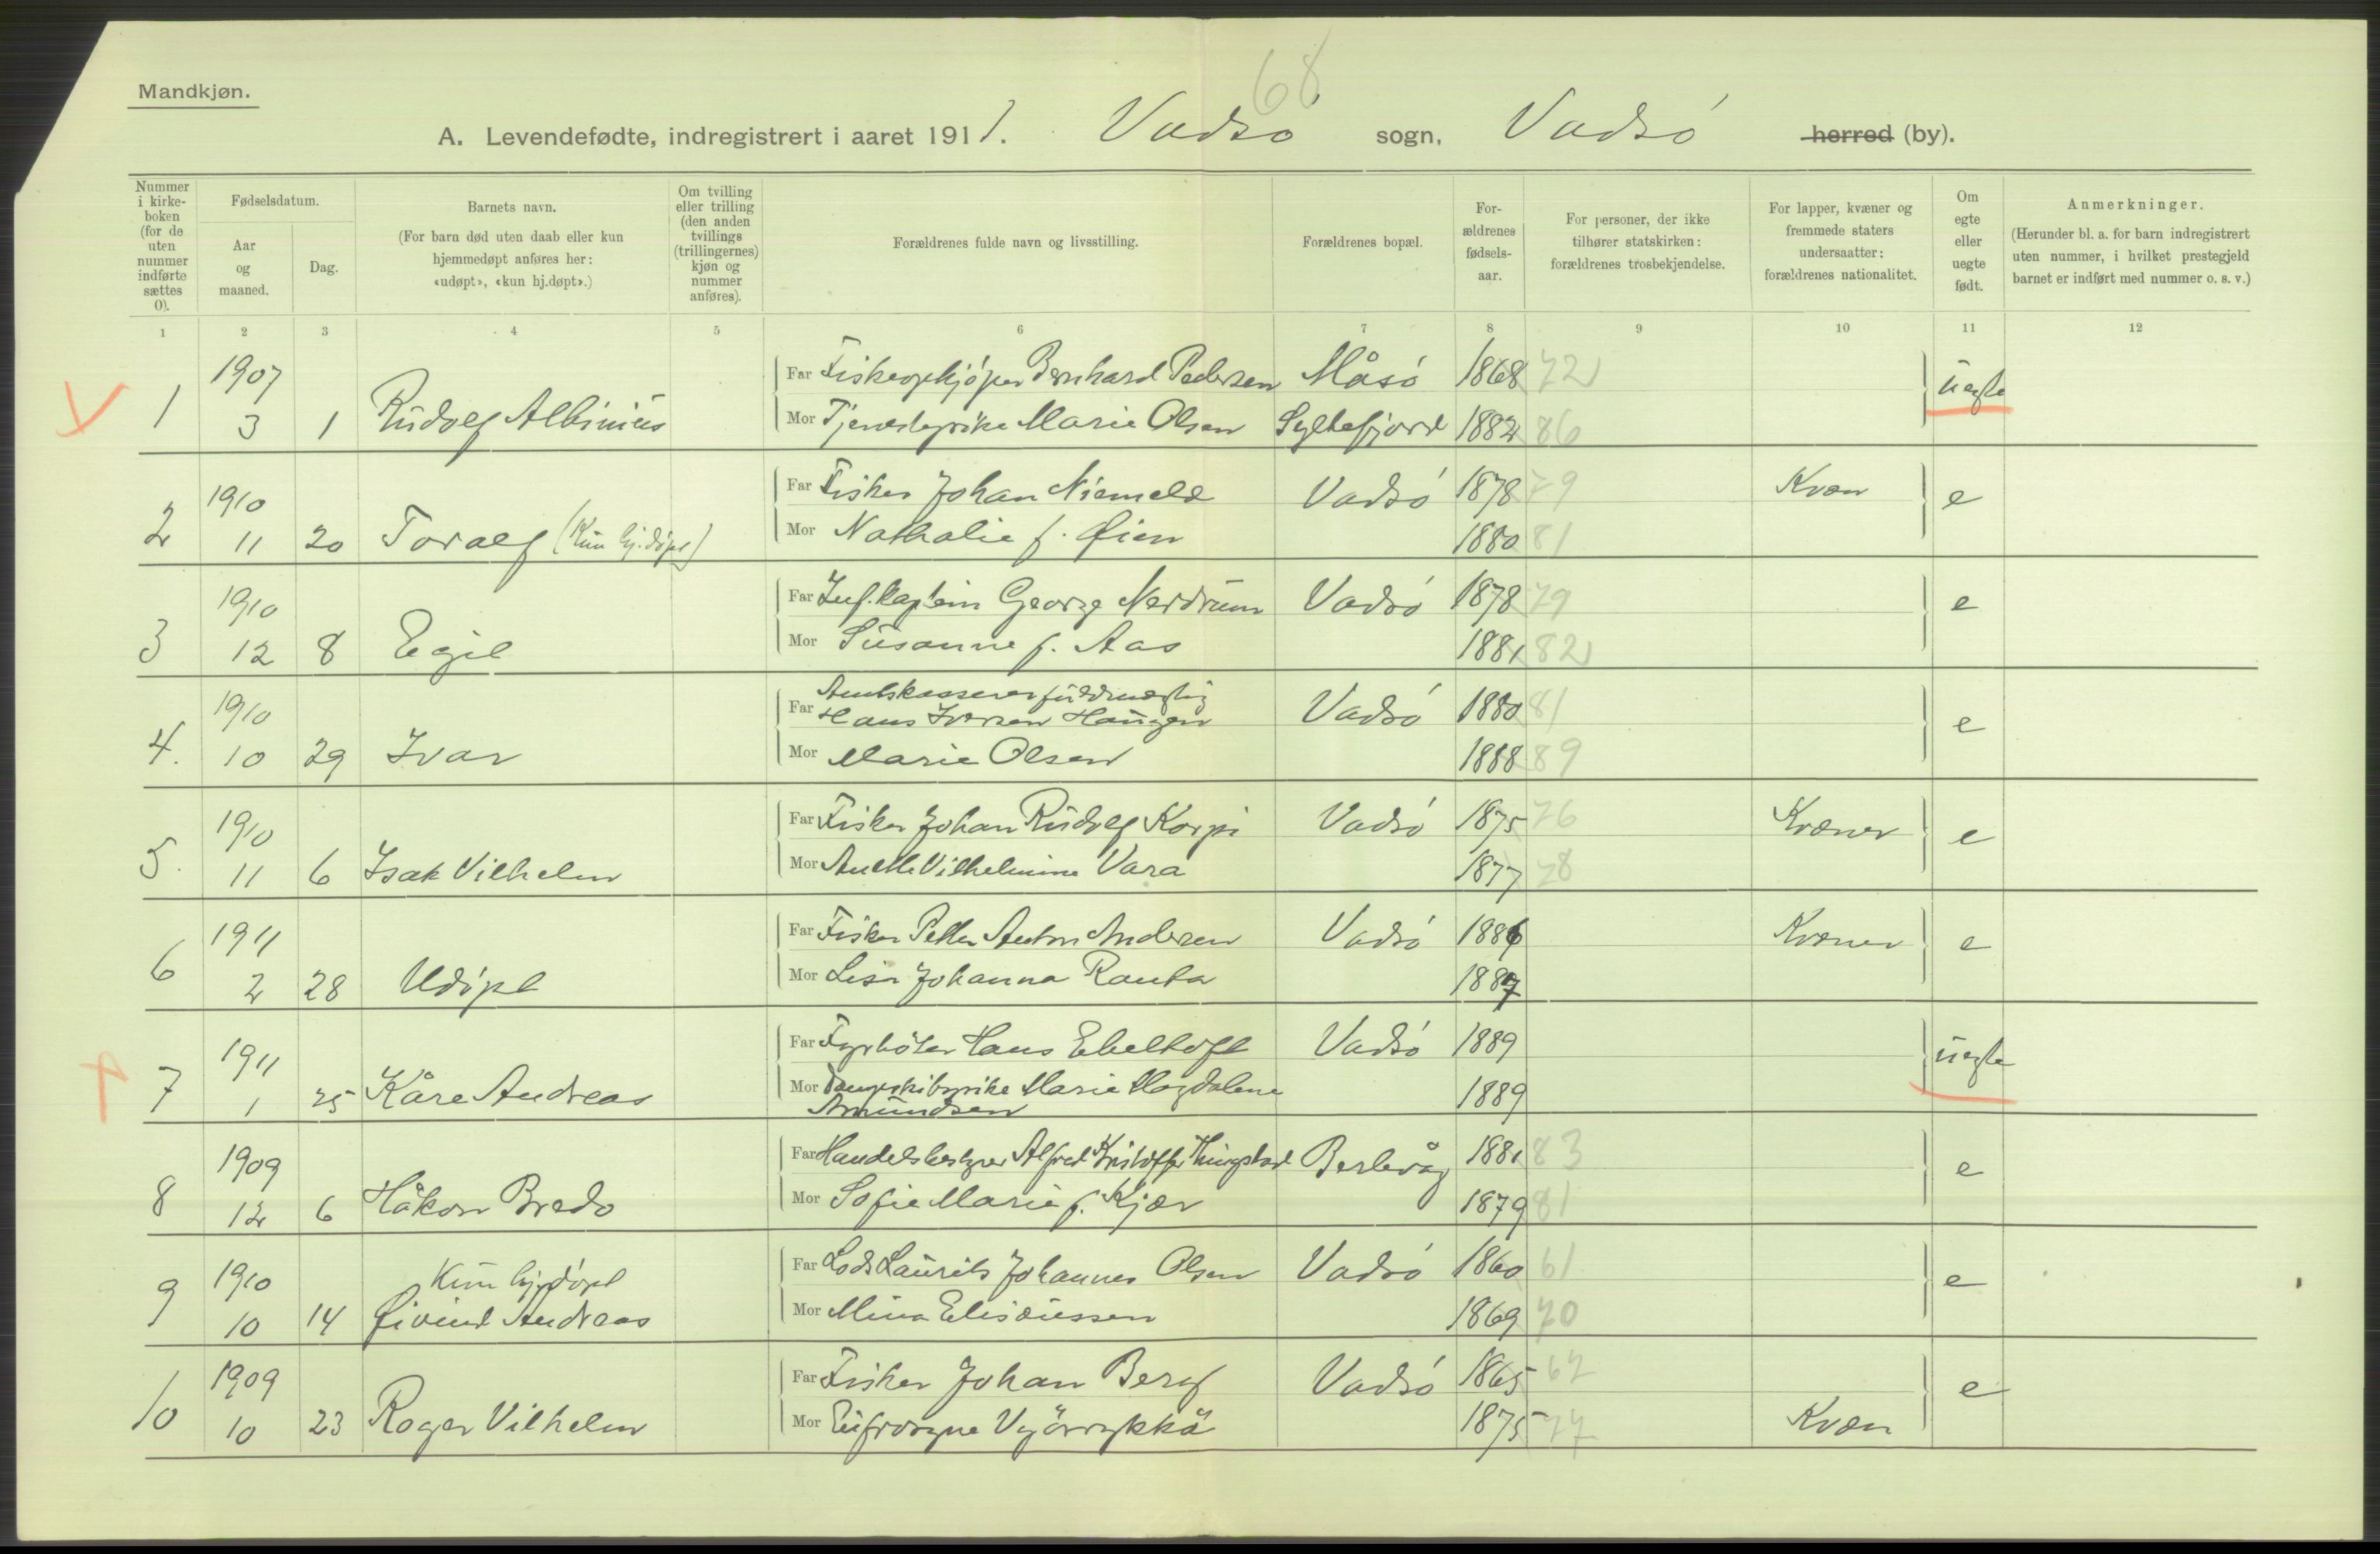 68
Mandkjøn.
A. Levendefødte, indregistrert i aaret 1911. Vadsø sogn, Vadsø herred (by).
Nummer i kirke-boken (for de uten nummer indførte sættes 0).
Fødselsdatum.
Aar og maaned.
Dag.
Barnets navn.
(For barn død uten daab eller kun hjemmedøpt anføres her: «udøpt», «kun hj.døpt».)
Om tvilling eller trilling (den anden tvillings (trillingernes) kjøn og nummer anføres).
Forældrenes fulde navn og livsstilling.
Forældrenes bopæl.
For-ældrenes fødsels-aar.
For personer, der ikke tilhører statskirken: forældrenes trosbekjendelse.
For lapper, kvæner og fremmede staters undersaatter: forældrenes nationalitet.
Om egte eller uegte født.
Anmerkninger.
(Herunder bl. a. for barn indregistrert uten nummer, i hvilket prestegjeld barnet er indført med nummer o. s. v.)
1 2 3 4 5 6 7 8 9 10 11 12
1907 Far Fiskeopkjøper Bernhard Pedersen Måsø 1868 72 uegte
1 3 1 Rudolf Albinius Mor Tjenestepike Marie Olsen Syltefjord 1882 86
1910 Far Fisker Johan Niemelä Vadsø 1878 79 Kvæn e
2 11 20 Toralf (Kun hj.døpt) Mor Nathalie f. Øien 1880 81
1910 Far Inf.kaptein George Nerdrum Vadsø 1878 79 e
3 12 8 Egil Mor Susanne f. Aas 1881 82
1910 Far Amtskassererfuldmægtig Hans Iversen Haugen Vadsø 1880 81 e
4. 10 29 Ivar Mor Marie Olsen 1888 89
1910 Far Fisker Johan Rudolf Korpi Vadsø 1875 76 Kvæner e
5. 11 6 Isak Vilhelm Mor Anette Vilhelmine Vara 1877 78
1911 Far Fisker Petter Anton Andersen Vadsø 1886 Kvæner e
6 2 28 Udøpt Mor Lisa Johanna Rauta 1887
1911 Far Fyrbøter Hans Ebeltoft Vadsø 1889 uegte
7 1 25 Kåre Andreas Mor Dampskibspike Marie Magdalene Amundsen 1889
1909 Far Handelsbestyrer Alfred Kristoffer Thingstad Berlevåg 1881 83 e
8 12 6 Håkon Bredo Mor Sofie Marie f. Kjær 1879 81
1910 Kun hj.døpt Far Lods Laurits Johannes Olsen Vadsø 1860 61 e
9 10 14 Øivind Andreas Mor Mina Elisæussen 1869 70
1909 Far Fisker Johan Berg Vadsø 1865 67 e
10 10 23 Roger Vilhelm Mor Eufrosyne Vyörrykkä 1875 77 Kvæn